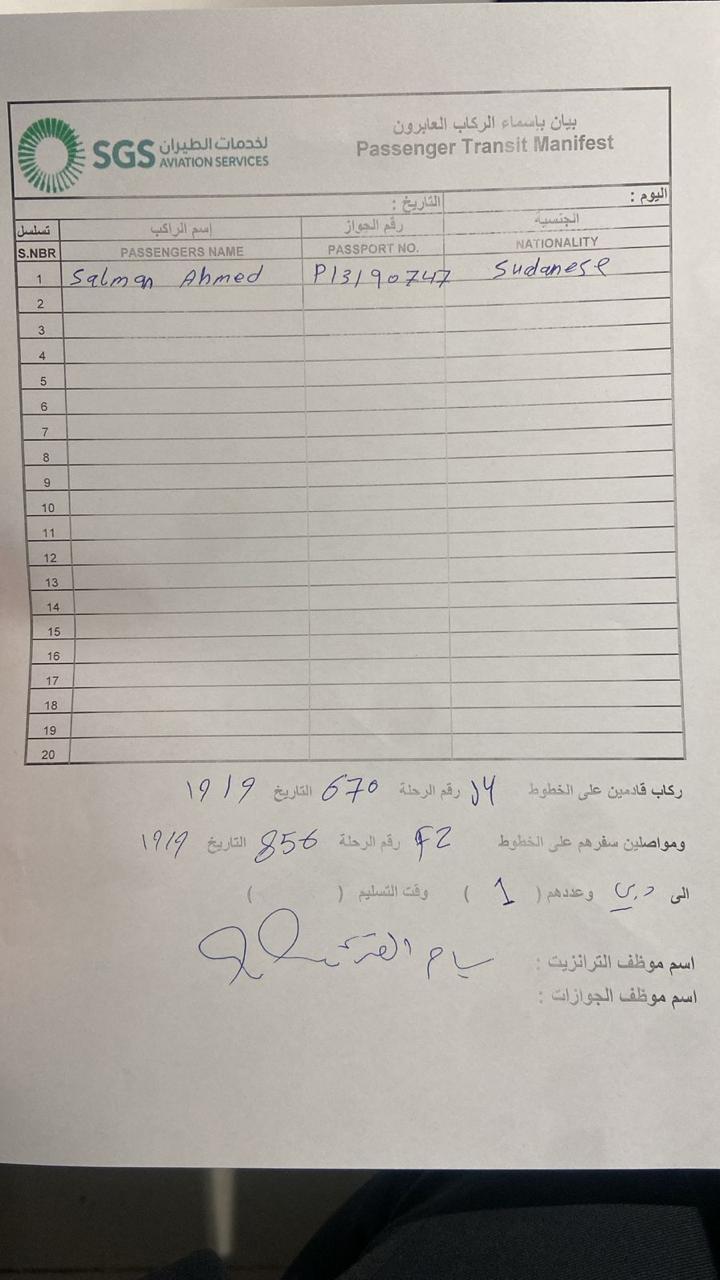 SGS لخدمات الطيران
AVIATION SERVICES
بيان بإسماء الركاب العابرون
Passenger Transit Manifest
اليوم : التاريخ :
تسلسل إسم الراكب رقم الجواز الجنسية
S.NBR PASSENGERS NAME PASSPORT NO. NATIONALITY
1 Salman Ahmed P13190747 Sudanese
2
3
4
5
6
7
8
9
10
11
12
13
14
15
16
17
18
19
20
ركاب قادمين على الخطوط J4 رقم الرحلة 670 التاريخ 19/9
ومواصلين سفرهم على الخطوط FZ رقم الرحلة 856 التاريخ 19/9
الى دبي وعددهم ( 1 ) وقت التسليم ( )
اسم موظف الترانزيت :
اسم موظف الجوازات :